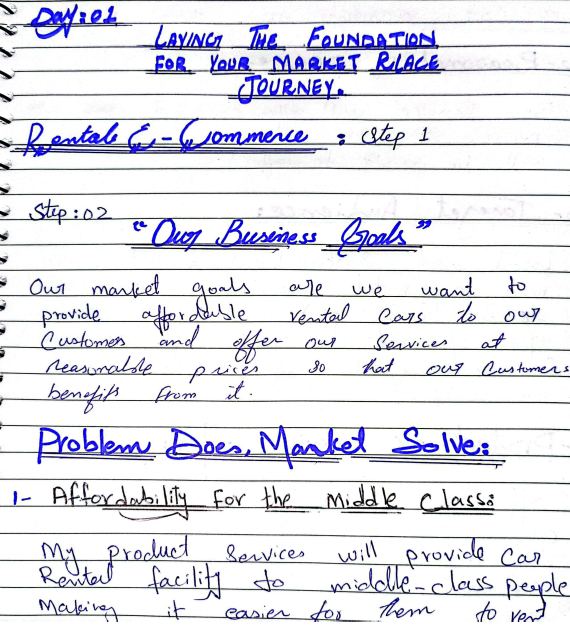 Day:01
LAYING THE FOUNDATION
FOR YOUR MARKET PLACE
JOURNEY.
Rental E-Commerce : Step 1
Step:02
"Our Business Goals"
Our market goals are we want to
provide affordable rental Cars to our
Customers and offer our Services at
reasonable prices so that our Customers
benefits from it.
Problem Does, Market Solve:
1- Affordability For the Middle Class:
My product Services will provide Car
Rental facility to middle-class people
Making it easier for them to rent